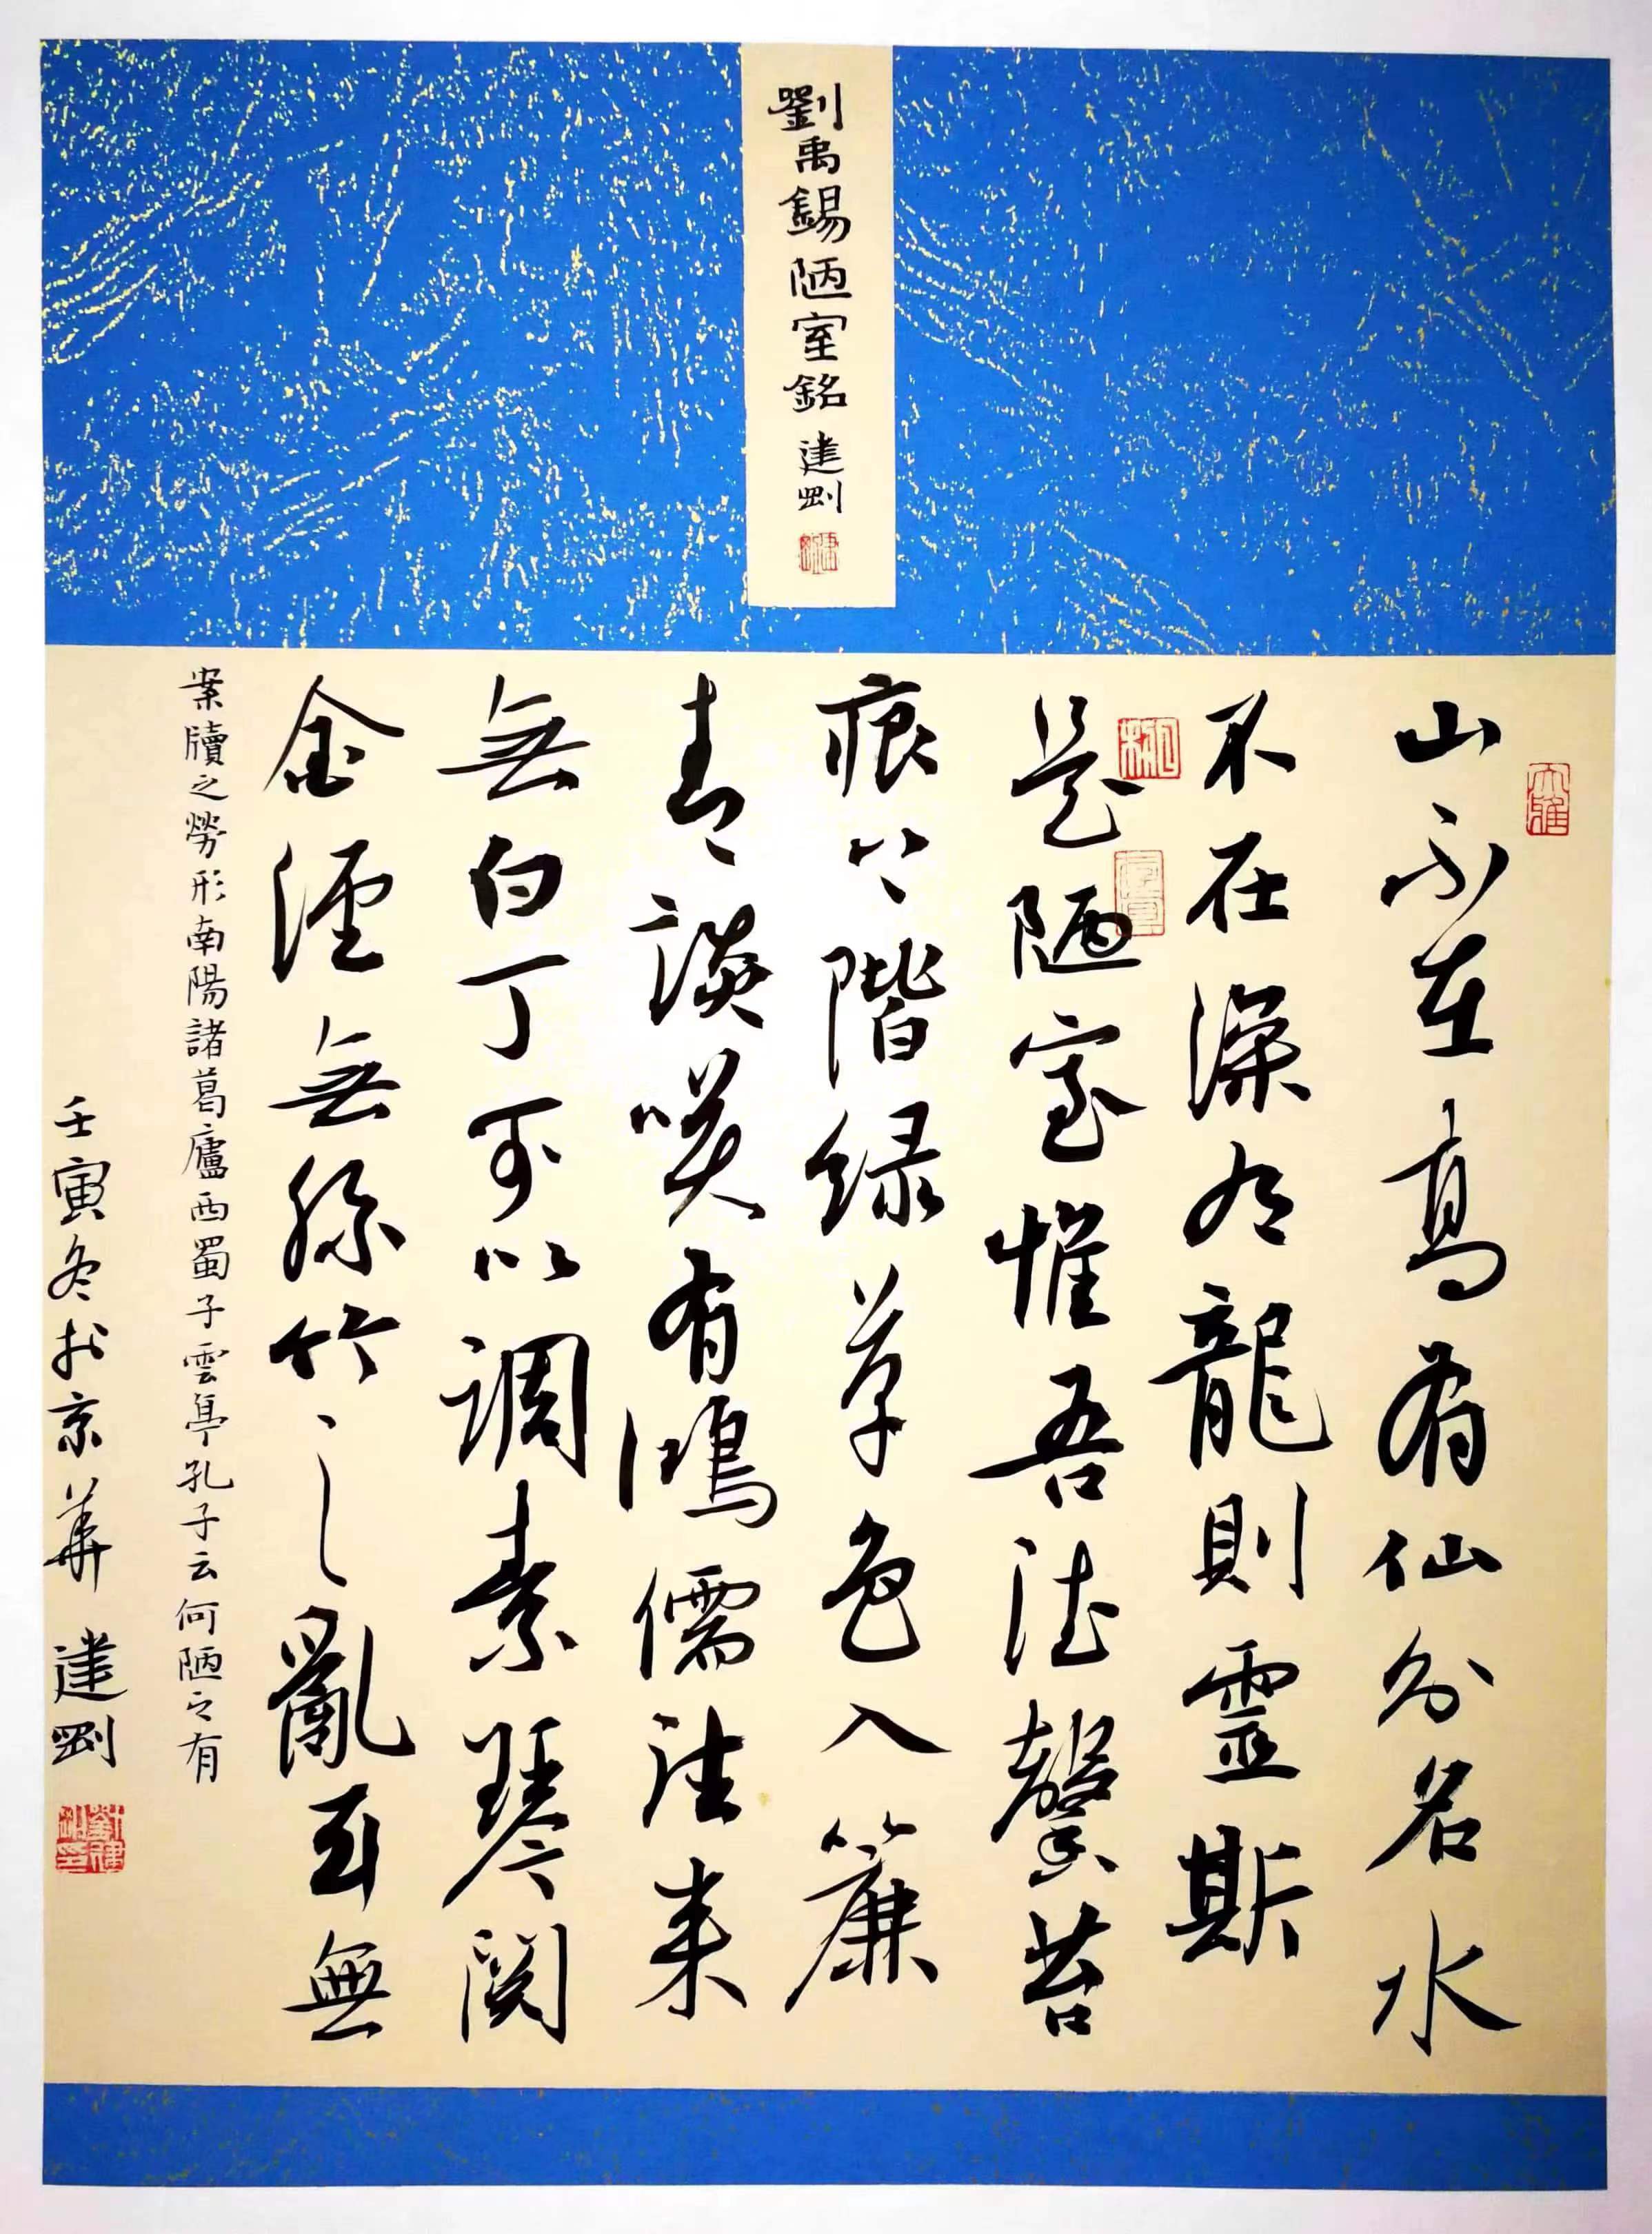 劉禹錫陋室銘 建剛
山不在高有仙則名水
不在深有龍則靈斯
是陋室惟吾德馨苔
痕上階緑草色入簾
青談咲有鴻儒往来
無白丁可以調素琴閱
金經無絲竹之亂耳無
案牘之勞形南陽諸葛廬西蜀子雲亭孔子云何陋之有
壬寅冬於京華 建剛
劉建剛印